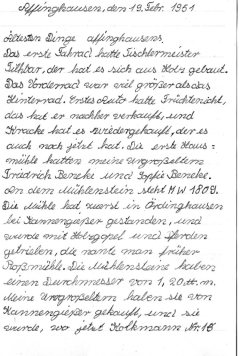 Affinghausen, den 19. Febr. 1961
Ältesten Dinge Affinghausens.
Das erste Fahrrad hatte Tischlermeister
der hat es sich aus Holz gebaut.
Das Vorderrad war viel größer als das
Hinterrad. Erstes Auto hatte
das hat er nachher verkauft, und
Kracke hat es wiedergekauft, der es
auch noch jetzt hat. Die erste Haus=
mühle hatten meine Urgroßeltern
Friedrich Beneke und Sophie Beneke.
An dem Mühlenstein steht HW 1809.
Die Mühle hat zuerst in Ördinghausen
bei Kannengießer gestanden, und
wurde mit Holzgöpel und Pferden
getrieben, die nannte man früher
Roßmühle. Die Mühlensteine haben
einen Durchmesser von 1,20 m.
Meine Urgroßeltern haben sie von
Kannengießer gekauft, und sie
wurde, wo jetzt Holtmann Nr. 18